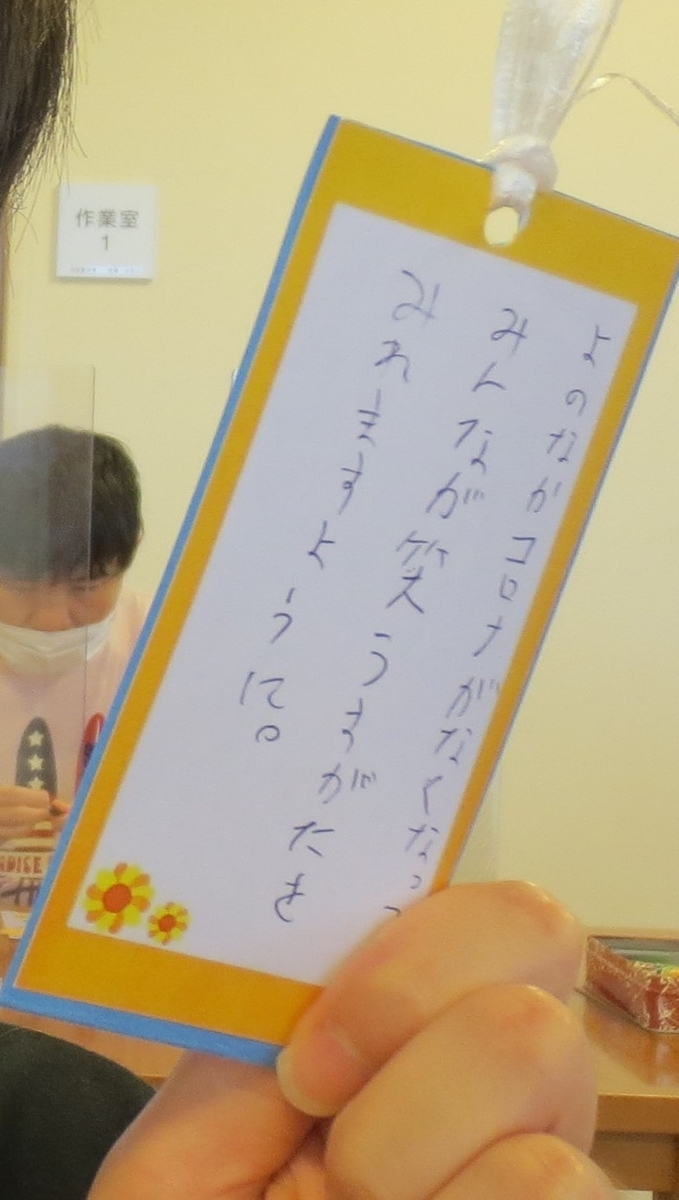 作業室
1
よのなかコロナがなくなって
みんなが笑うすがたを
みれますように。